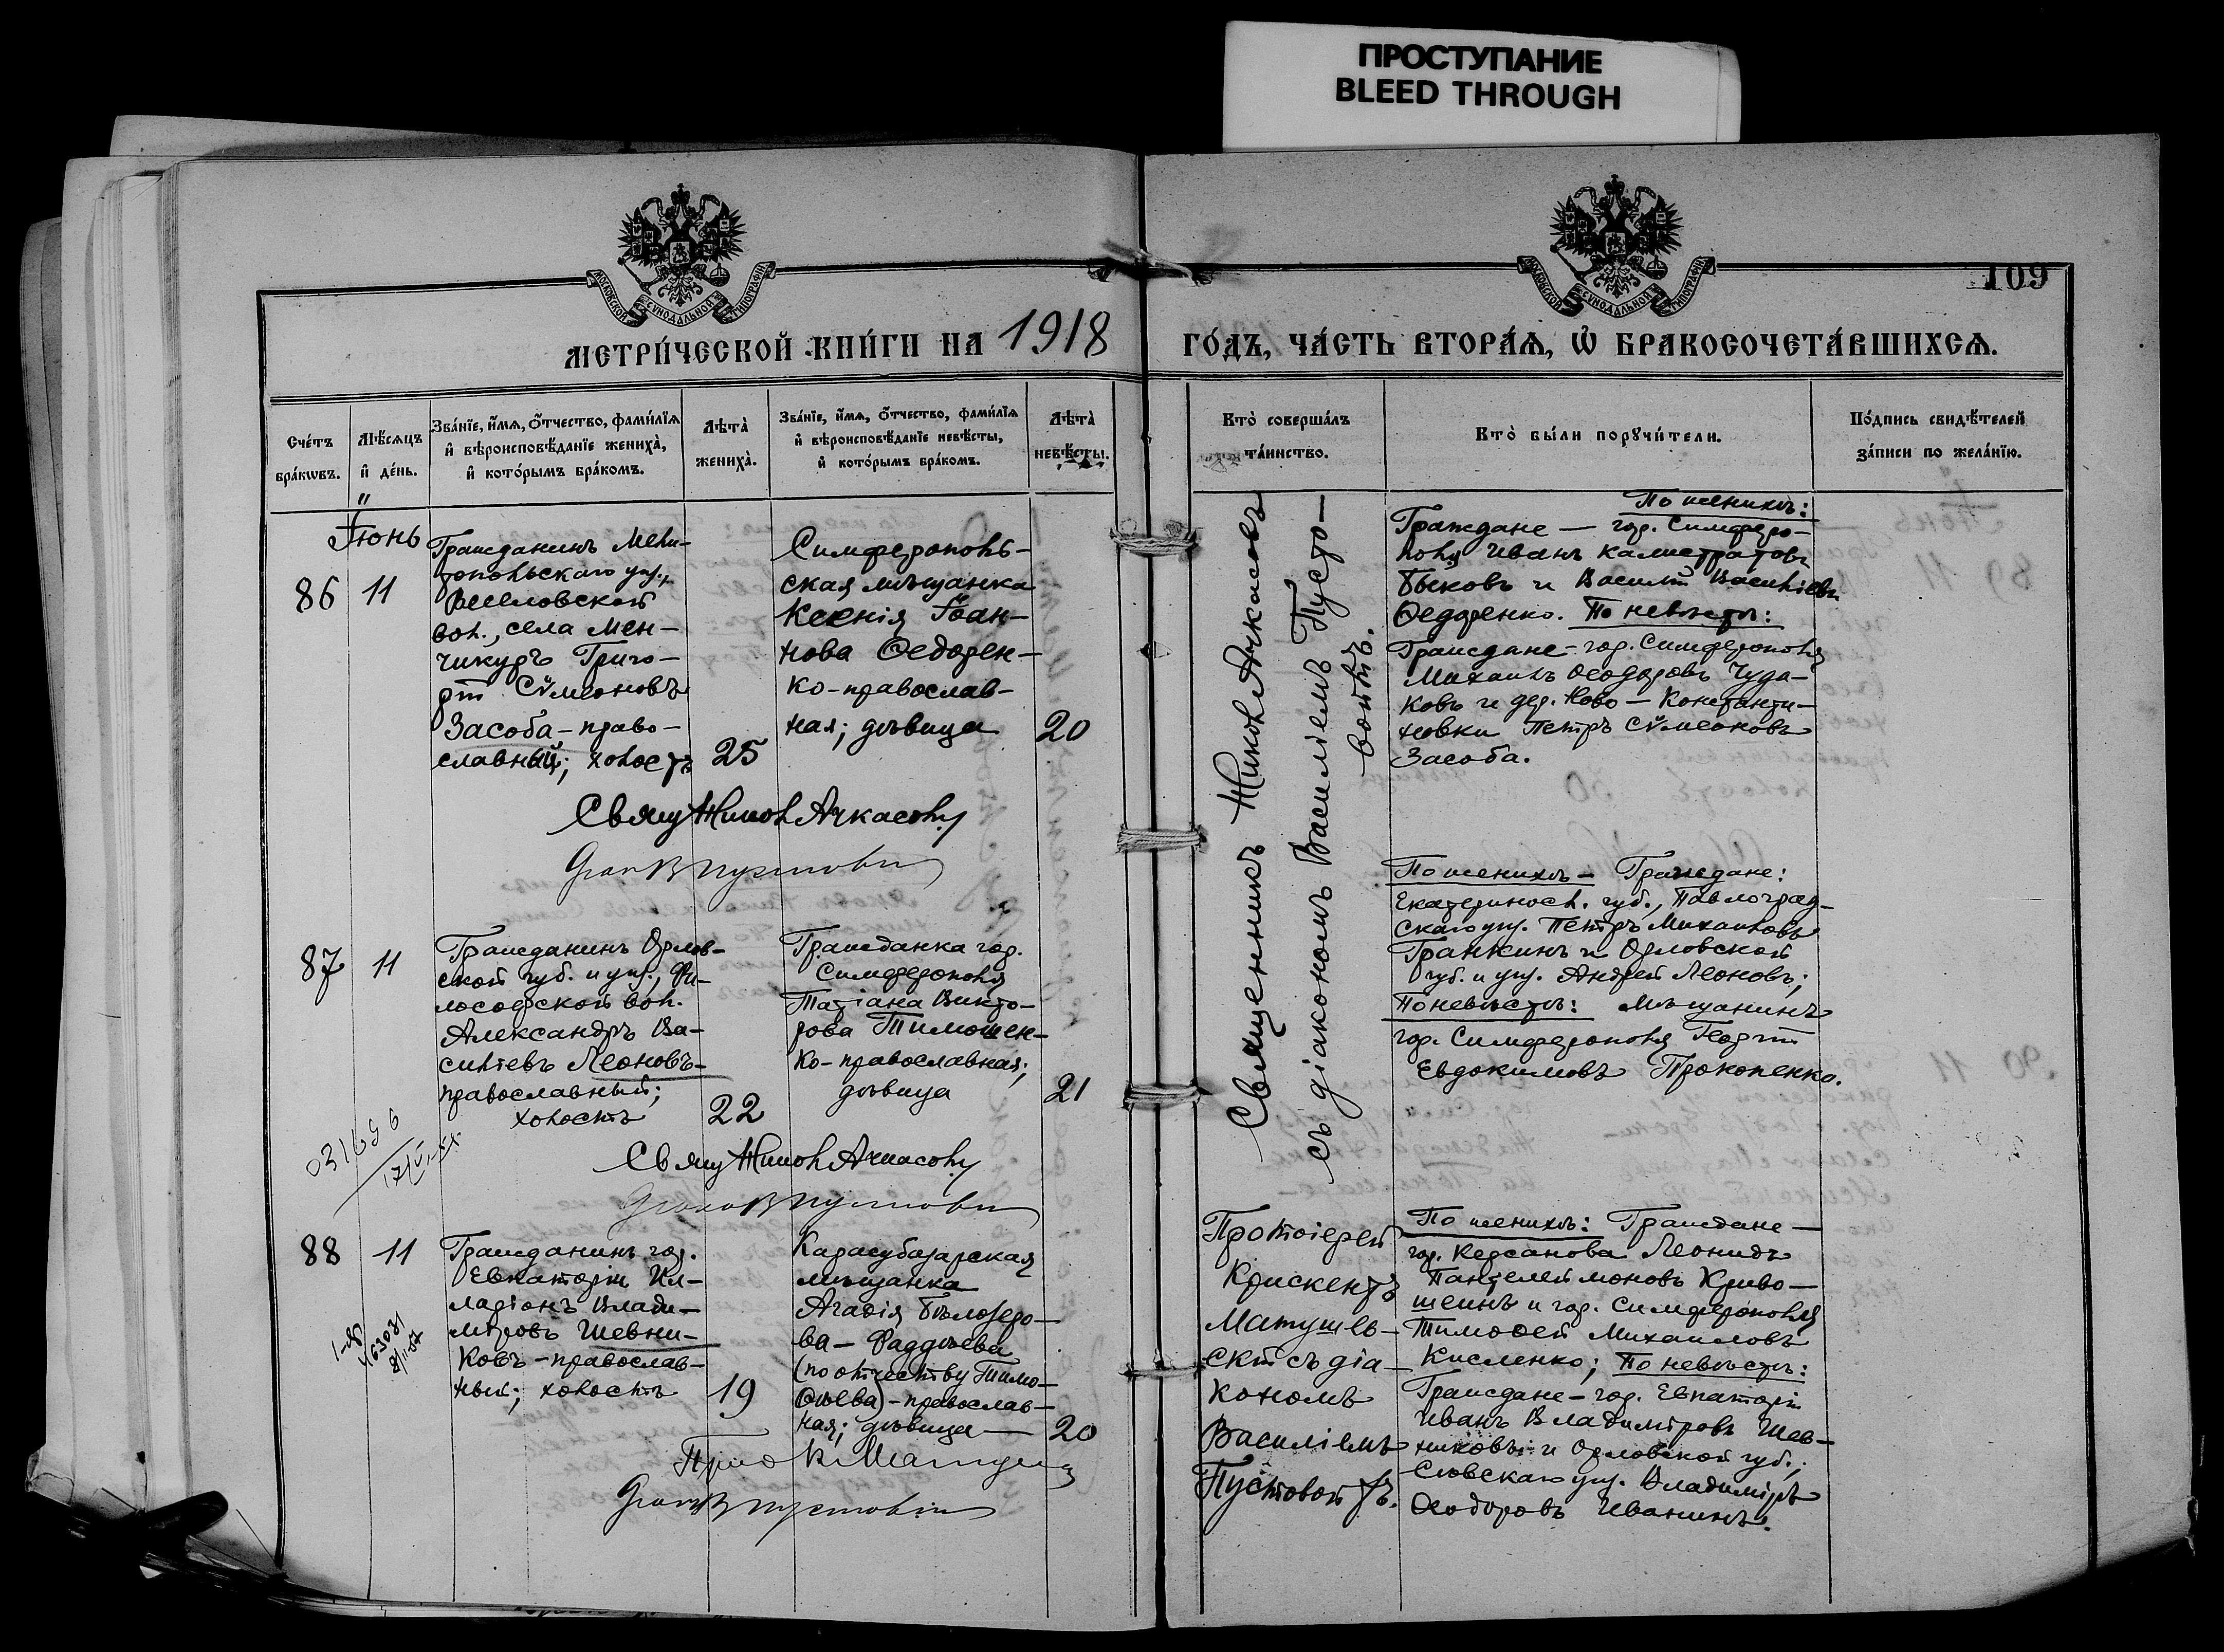 ПРОСТУПАНИЕ
BLEED THROUGH
МОСКОВСКОЙ СѴНОДАЛЬНОЙ ТИПОГРАФІИ
МОСКОВСКОЙ СѴНОДАЛЬНОЙ ТИПОГРАФІИ
109
МЕТРИ́ЧЕСКОЙ КНИ́ГИ НА 1918
ГО́ДЪ, ЧА́СТЬ ВТОРА́Ѧ, Ѡ҆ БРАКОСОЧЕТА́ВШИХСѦ.
Сче́тъ
бра́кѡвъ.
Мѣ́сѧцъ
и҆ де́нь.
Зва́нїе, и҆́мѧ, ѻ҆́тчество, фами́лїѧ
и҆ вѣроисповѣ́данїе жениха̀,
и҆ кото́рымъ бра́комъ.
Лѣта̀
жениха̀.
Зва́нїе, и҆́мѧ, ѻ҆́тчество, фами́лїѧ
и҆ вѣроисповѣ́данїе невѣ́сты,
и҆ кото́рымъ бра́комъ.
Лѣта̀
невѣ́сты.
Кто̀ соверша́лъ
та́инство.
Кто̀ бы́ли порꙋчи́тели.
По́дпись свидѣ́телей
за́писи по жела́нїю.
Іюнь
86
11
Гражданинъ Мели-
топольскаго уѣз.,
Веселовской
вол., села Мен-
чикуръ Григо-
рій Сѷмеоновъ
Засоба - право-
славный; холостъ
25
Симферополь-
ская мѣщанка
Ксенія Іоан-
нова Ѳедорен-
ко - православ-
ная; дѣвица
20
Свящ Никол Ачкасовъ
Священникъ Никол Ачкасовъ
съ діакономъ Василіемъ Пусто-
войтъ.
По женихѣ:
Граждане — гор. Симферо-
поля Иванъ Калистратовъ
Быковъ и Василій Васильевъ
Ѳедоренко. По невѣстѣ:
Граждане - гор. Симферополя
Михаилъ Ѳеодоровъ Чуда-
ковъ и дер. Ново - Константи-
новки Петръ Сѷмеоновъ
Засоба.
87
11
Гражданинъ Орлов-
ской губ. и уѣз., Фи-
лософской вол.
Александръ Ва-
сильевъ Леоновъ -
православный;
холостъ
22
Гражданка гор.
Симферополя
Татіана Викто-
рова Тимошен-
ко - православная;
дѣвица
21
Свящ Никол Ачкасовъ
По женихѣ — Граждане:
Екатериносл. губ., Павлоград-
скаго уѣз. Петръ Михаиловъ
Гранкинъ и Орловской
губ. и уѣз. Андрей Леоновъ;
По невѣстѣ: мѣщанинъ
гор. Симферополя Георгій
Евдокимовъ Прокопенко.
031696
88
11
Гражданинъ гор.
Евпаторіи Ил-
ларіонъ Влади-
міровъ Шевни-
ковъ - православ-
ный; холостъ
19
Карасубазарская
мѣщанка
Агаѳія Бѣлозеро-
ва - Фаддѣева
(по отчеству Тимо-
ѳѣева) - православ-
ная; дѣвица —
20
Протоіерей
Крискентъ
Матушев-
скій съ діа-
кономъ
Василіемъ
Пустовойтъ.
По женихѣ: Граждане —
гор. Керсанова Леонидъ
Пантелеимоновъ Криво-
шеинъ и гор. Симферополя
Тимоѳей Михаиловъ
Кисленко; По невѣстѣ:
Граждане - гор. Евпаторіи
Иванъ Владиміровъ Шев-
никовъ и Орловской губ.,
Сѣвскаго уѣз. Владиміръ
Ѳеодоровъ Иванинъ.